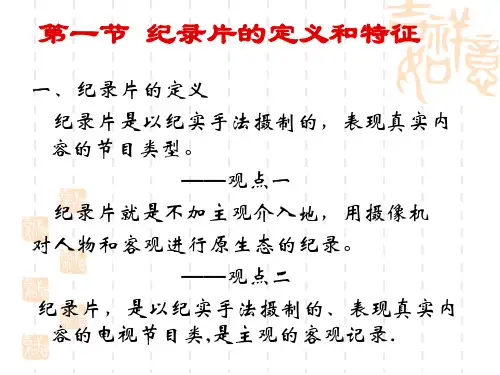 第一节 纪录片的定义和特征
一、纪录片的定义
纪录片是以纪实手法摄制的，表现真实内
容的节目类型。
——观点一
纪录片就是不加主观介入地，用摄像机
对人物和客观进行原生态的纪录。
——观点二
纪录片，是以纪实手法摄制的、表现真实内
容的电视节目类,是主观的客观记录.